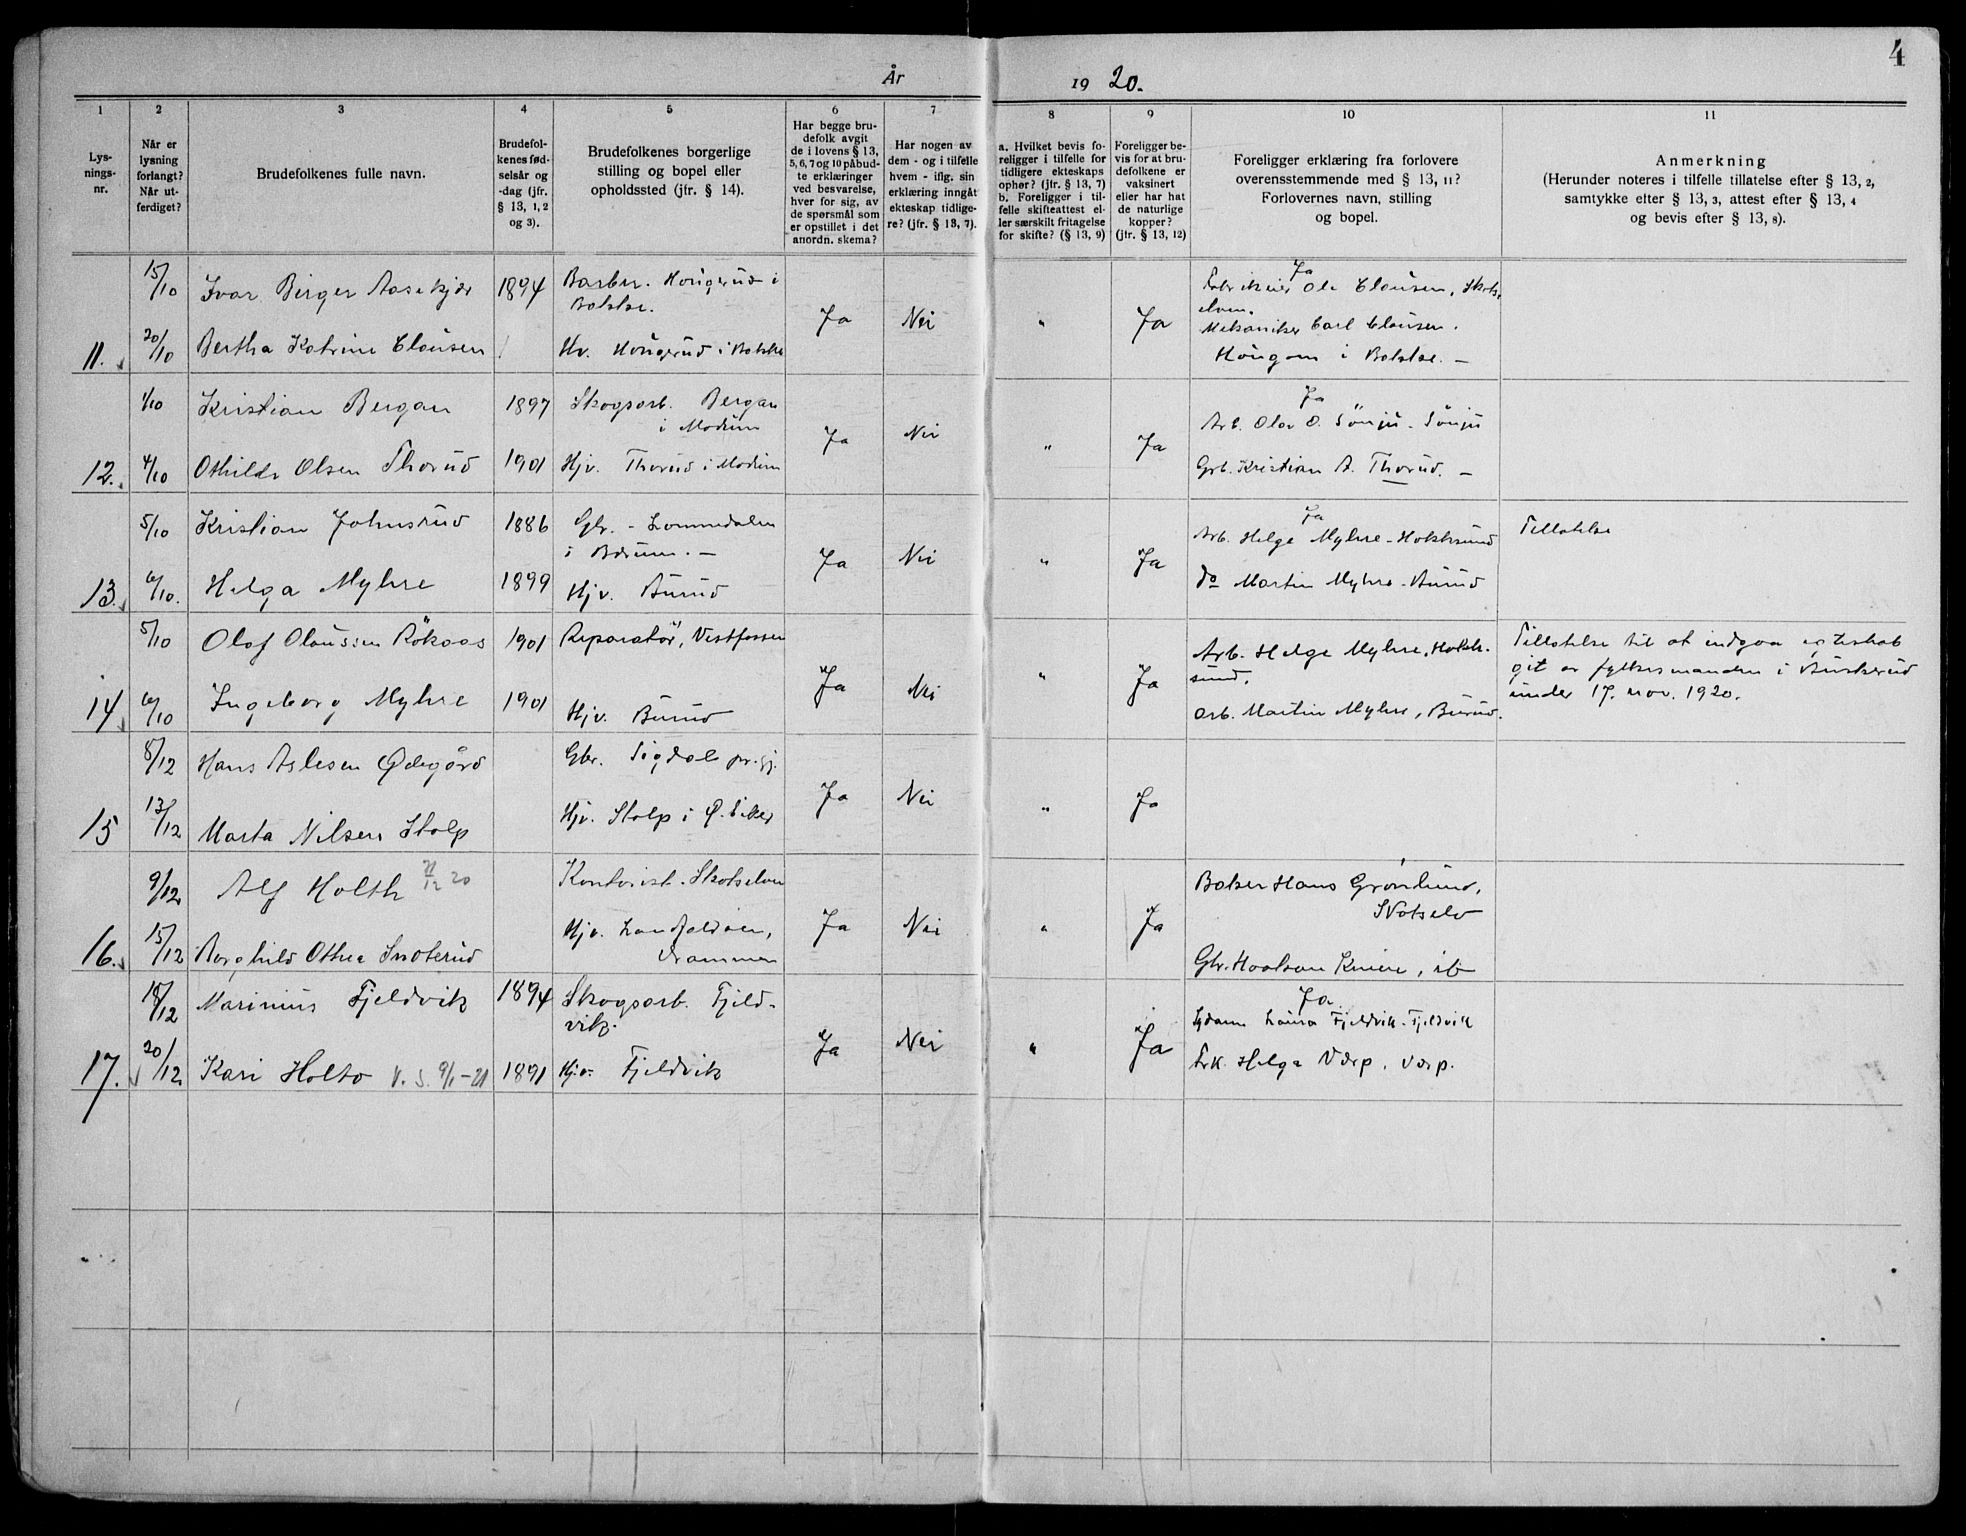 4
År 19 20.
1
2
3
4
5
6
7
8
9
10
11
Lys-
nings-
nr.
Når er
lysning
forlangt?
Når ut-
ferdiget?
Brudefolkenes fulle navn.
Brudefol-
kenes fød-
selsår og
-dag (jfr.
§ 13, 1, 2
og 3).
Brudefolkenes borgerlige
stilling og bopel eller
opholdssted (jfr. § 14).
Har begge bru-
defolk avgit
de i lovens § 13,
5, 6, 7 og 10 påbud-
te erklæringer
ved besvarelse,
hver for sig, av
de spørsmål som
er opstillet i det
anordn. skema?
Har nogen av
dem - og i tilfelle
hvem - iflg. sin
erklæring inngått
ekteskap tidlige-
re? (jfr. § 13, 7).
a. Hvilket bevis fo-
religger i tilfelle for
tidligere ekteskaps
ophør? (jfr. § 13, 7)
b. Foreligger i til-
felle skifteattest el-
ler særskilt fritagelse
for skifte? (§ 13, 9)
Foreligger be-
vis for at bru-
defolkene er
vaksinert
eller har hat
de naturlige
kopper?
(jfr. § 13, 12)
Foreligger erklæring fra forlovere
overensstemmende med § 13, 11?
Forlovernes navn, stilling
og bopel.
Anmerkning
(Herunder noteres i tilfelle tillatelse efter § 13, 2,
samtykke efter § 13, 3, attest efter § 13, 4
og bevis efter § 13, 8).
11.
15/10
Ivar Birger Aasekjær
1894
Barber. Hougsrud i
Bakke.
20/10
Bertha Katrine Clausen
Hv. Hougsrud i Bakke
Ja
Nei
"
Ja
Ja
Fabrikeier Ole Clausen, Skots-
elven.
Mekaniker Carl Clausen.
Hougom i Bakke. –
12.
1/10
Kristian Bergan
1897
Skogsarb. Bergan
i Modum
4/10
Othilde Olsen Thorud
1901
Hjv. Thorud i Modum
Ja
Nei
"
Ja
Ja
Arb. Olav O. Sönju - Sönju
Grb. Kristian A. Thorud. –
13.
5/10
Kristian Johnsrud
1886
Gbr. - Lommedalen
i Bærum. –
6/10.
Helga Myhre
1899
Hjv. Burud
Ja
Nei
"
Ja
Ja
Arb. Helge Myhre - Hokksund
do Martin Myhre - Burud
Tillatelse
14
5/10
Olaf Olaussen Rökaas
1901
Reparatör, Vestfossen
6/10
Ingeborg Myhre
1901
Hjv. Burud
Ja
Nei
"
Ja
Arb. Helge Myhre, Hokk-
sund.
Arb. Martin Myhre, Burud.
Tillatelse til at indgaa egteskab
git av fylkesmanden i Buskerud
under 17. nov. 1920.
15
8/12
Hans Aslesen Ødegård
Gbr. Sigdal pr.gj.
13/12
Marta Nilsen Stolp
Hjv. Stolp i Ø. Eiker
Ja
Nei
"
Ja
16.
9/12
Alf Holth
Kontorist. Skotselven
15/12
Borghild Othea Snoterud
Hjv. Landfaldöen,
Drammen
Ja
Nei
"
Ja
Baker Hans Grønlund,
Skotselv
Gbr. Haakon Kniere, ib
17.
18/12
Marinius Fjeldvik
1894
Skogsarb. Fjeld-
vik.
20/12
Kari Holto V. S. 9/1-21
1891
Hjv. Fjeldvik
Ja
Nei
"
Ja
Ja
Laura Fjeldvik - Fjeldvik
Frk. Helga Værp, Værp.